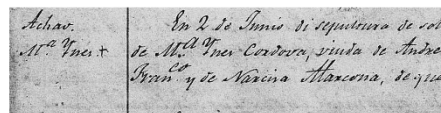 Achao.
En 2 de Junio di sepultura de sol
Ma Ynes +
de Ma Ynes Cordova, viuda de Andre
Franco y de Narcisa Marcona, de que